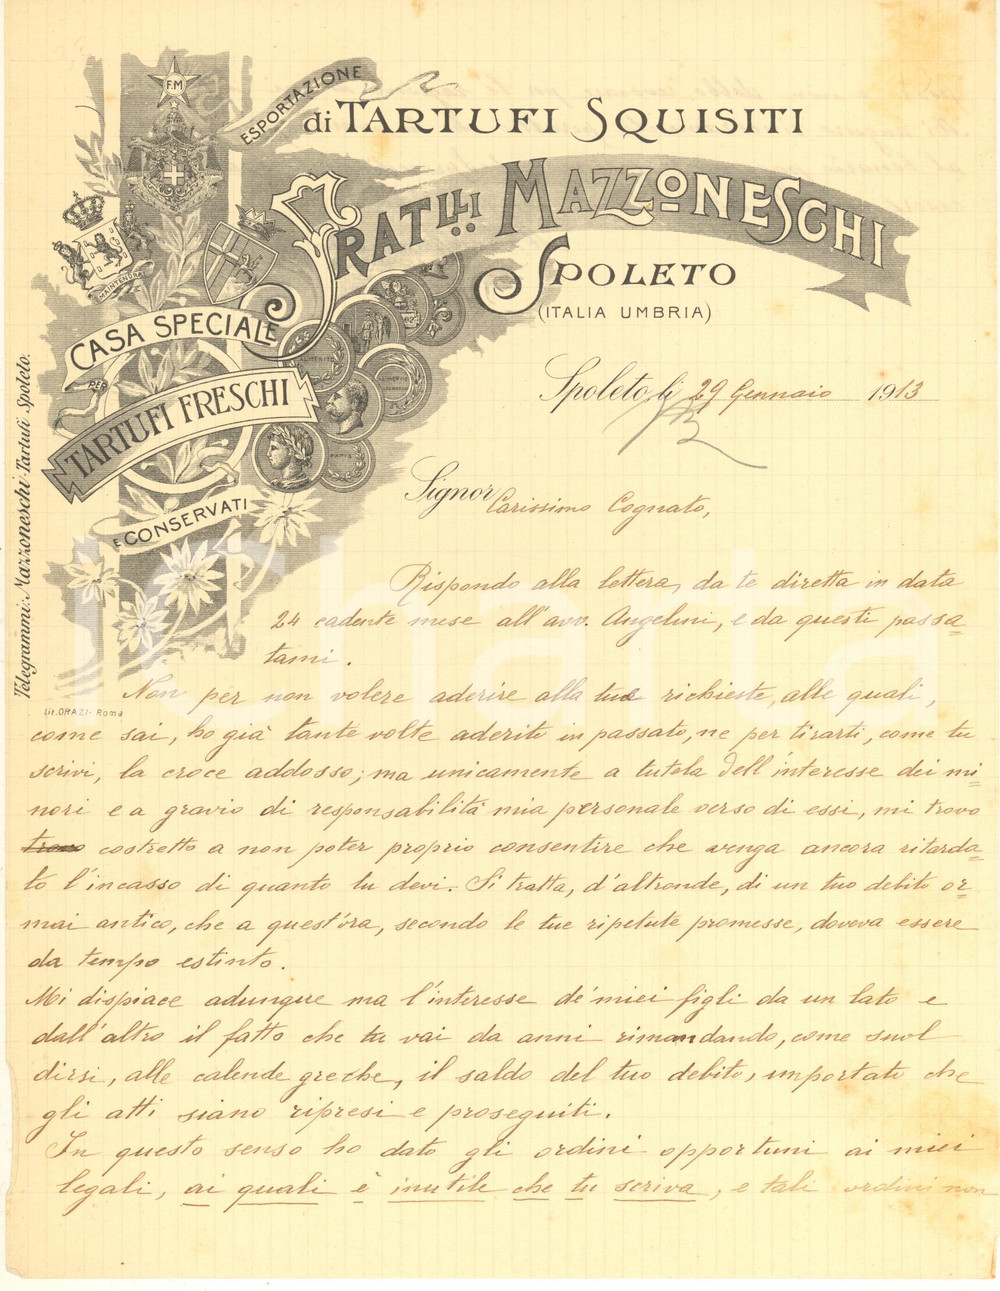 F.M
ESPORTAZIONE
di TARTUFI SQUISITI
FRATELLI MAZZONESCHI
SPOLETO
(ITALIA UMBRIA)
MAINTENDRAI
CASA SPECIALE
PER
TARTUFI FRESCHI
E CONSERVATI
Telegrammi: Mazzoneschi-Tartufi Spoleto.
Lit. ORAZI - Roma
Spoleto, li 29 Gennaio 1913
Signor Carissimo Cognato,
Rispondo alla lettera, da te diretta in data
24 cadente mese all'avv. Angelini, e da questi passa=
tami.
Non per non volere aderire alla tue richieste, alle quali,
come sai, ho già tante volte aderito in passato, ne per tirarti, come tu
scrivi, la croce addosso; ma unicamente a tutela dell'interesse dei mi=
nori e a gravio di responsabilità mia personale verso di essi, mi trovo
costretto a non poter proprio consentire che venga ancora ritarda=
to l'incasso di quanto tu devi. Si tratta, d'altronde, di un tuo debito or=
mai antico, che a quest'ora, secondo le tue ripetute promesse, doveva essere
da tempo estinto.
Mi dispiace adunque ma l'interesse de' miei figli da un lato e
dall'altro il fatto che tu vai da anni rimandando, come suol
dirsi, alle calende greche, il saldo del tuo debito, importato che
gli atti siano ripresi e proseguiti.
In questo senso ho dato gli ordini opportuni ai miei
legali, ai quali è inutile che tu scriva, e tali ordini non